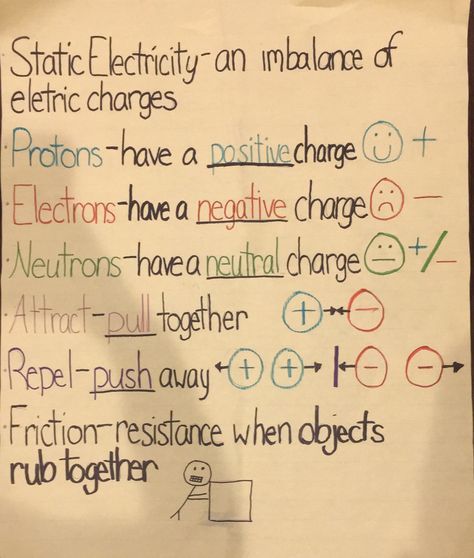 Static Electricity-an imbalance of
eletric charges
·Protons-have a positive charge +
·Electrons-have a negative charge -
·Neutrons-have a neutral charge +/-
·Attract-pull together + -
·Repel-push away + + - -
·Friction-resistance when objects
rub together